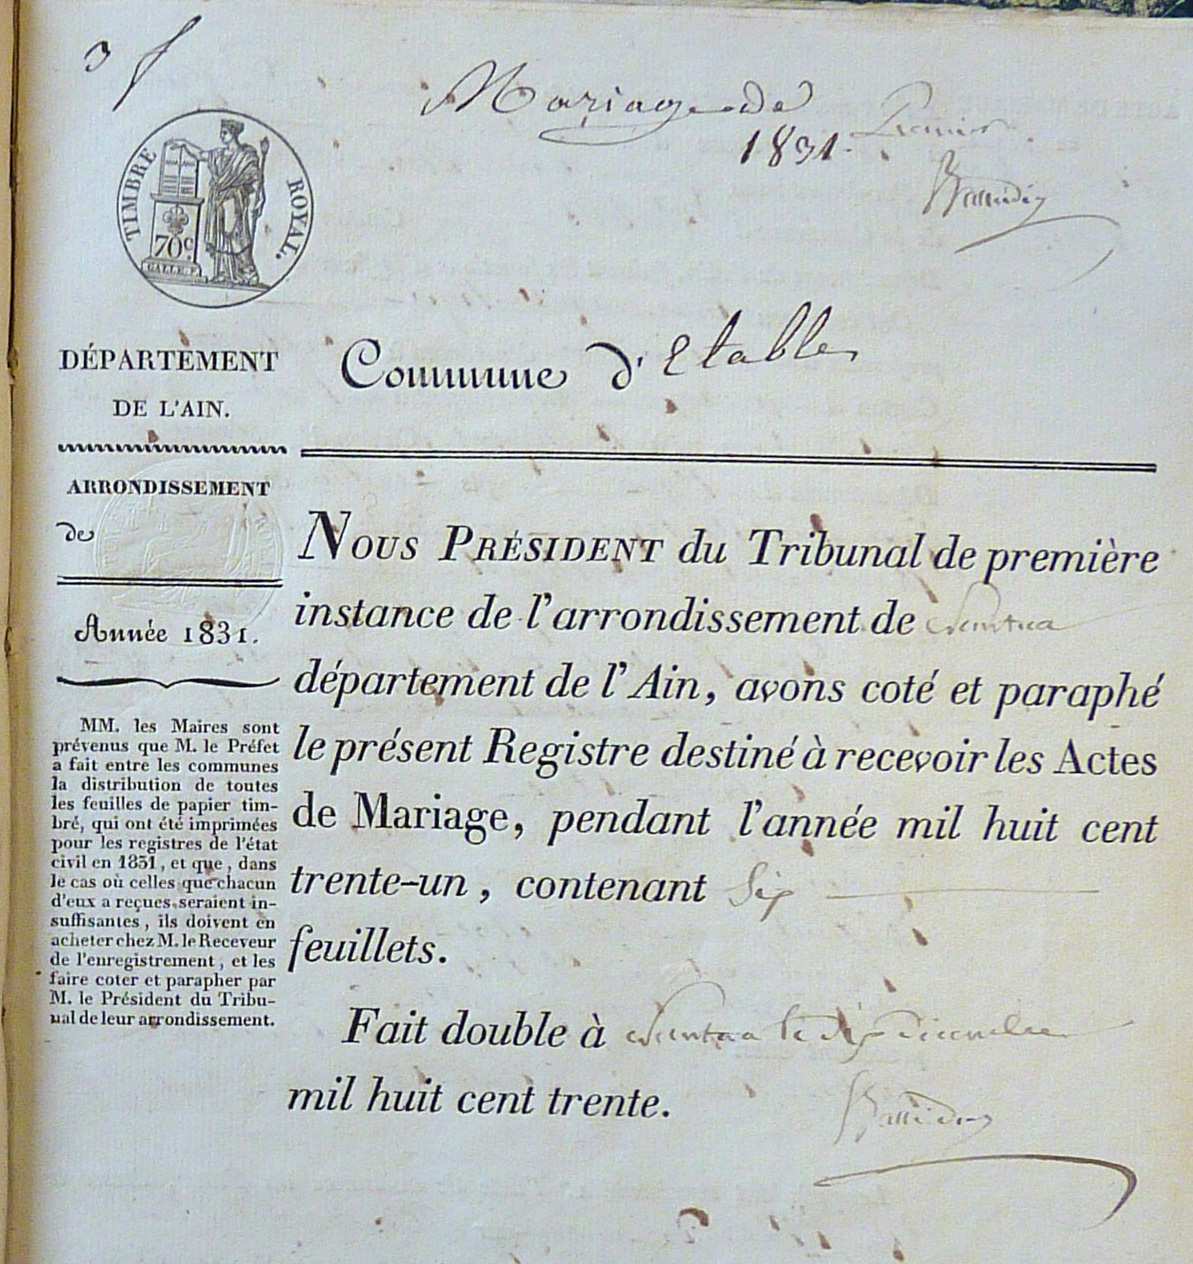 3 f
Mariage de
1831. Premier
TIMBRE ROYAL.
70c
GALLE F.
DÉPARTEMENT
DE L'AIN.
Commune d'Etables
ARRONDISSEMENT
de
Année 1831.
MM. les Maires sont
prévenus que M. le Préfet
a fait entre les communes
la distribution de toutes
les feuilles de papier tim-
bré, qui ont été imprimées
pour les registres de l'état
civil en 1831, et que, dans
le cas où celles que chacun
d'eux a reçues seraient in-
suffisantes, ils doivent en
acheter chez M. le Receveur
de l'enregistrement, et les
faire coter et parapher par
M. le Président du Tribu-
nal de leur arrondissement.
NOUS PRÉSIDENT du Tribunal de première
instance de l'arrondissement de Nantua
département de l'Ain, avons coté et paraphé
le présent Registre destiné à recevoir les Actes
de Mariage, pendant l'année mil huit cent
trente-un, contenant Six
feuillets.
Fait double à Nantua le dix décembre
mil huit cent trente.